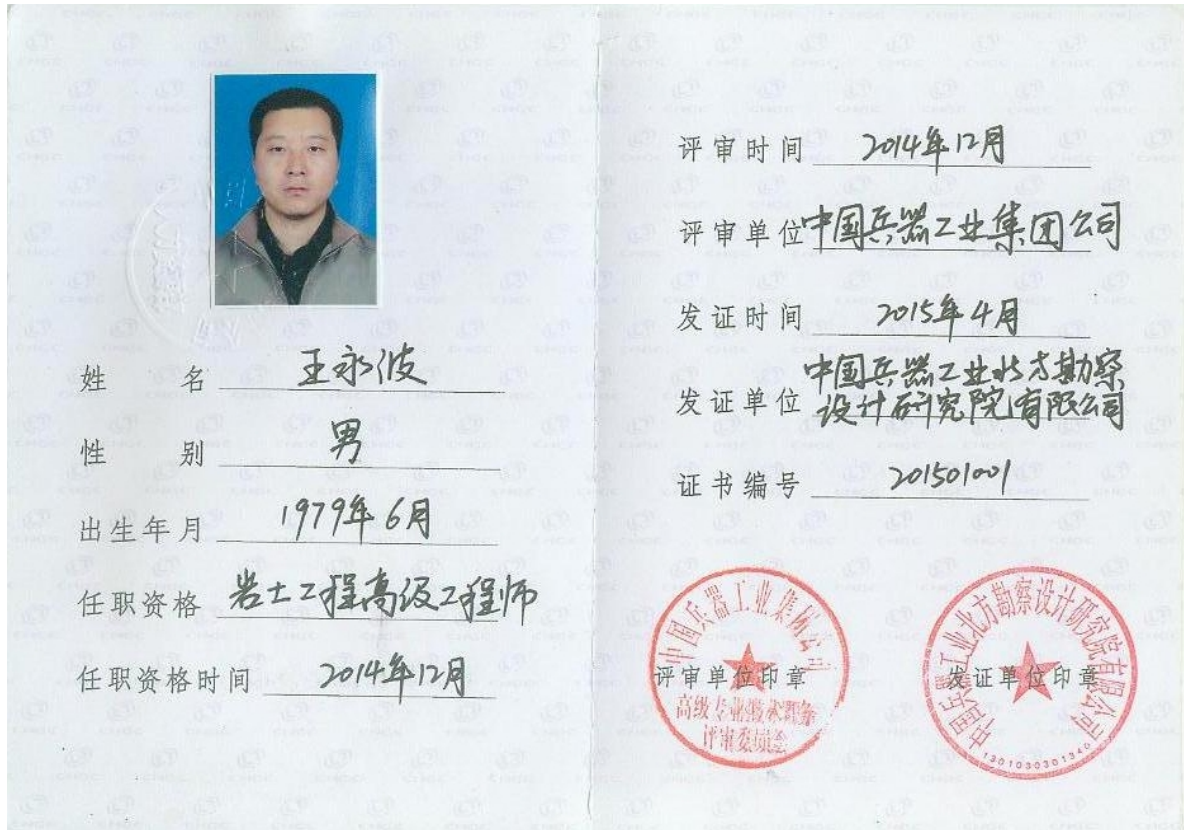 姓名 王永波
性别 男
出生年月 1979年6月
任职资格 岩土工程高级工程师
任职资格时间 2014年12月
评审时间 2014年12月
评审单位 中国兵器工业集团公司
发证时间 2015年4月
发证单位 中国兵器工业北方勘察
设计研究院有限公司
证书编号 201501001
中国兵器工业集团公司
评审单位印章
高级专业技术职务
评审委员会
中国兵器工业北方勘察设计研究院有限公司
发证单位印章
1301030301340
CNGC